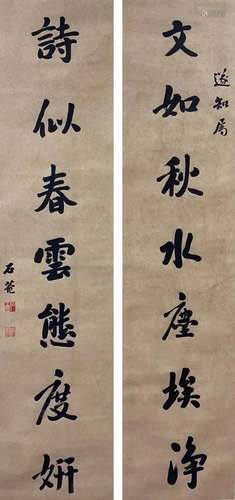 遂知属
文如秋水塵埃淨
詩似春雲態度妍
石菴